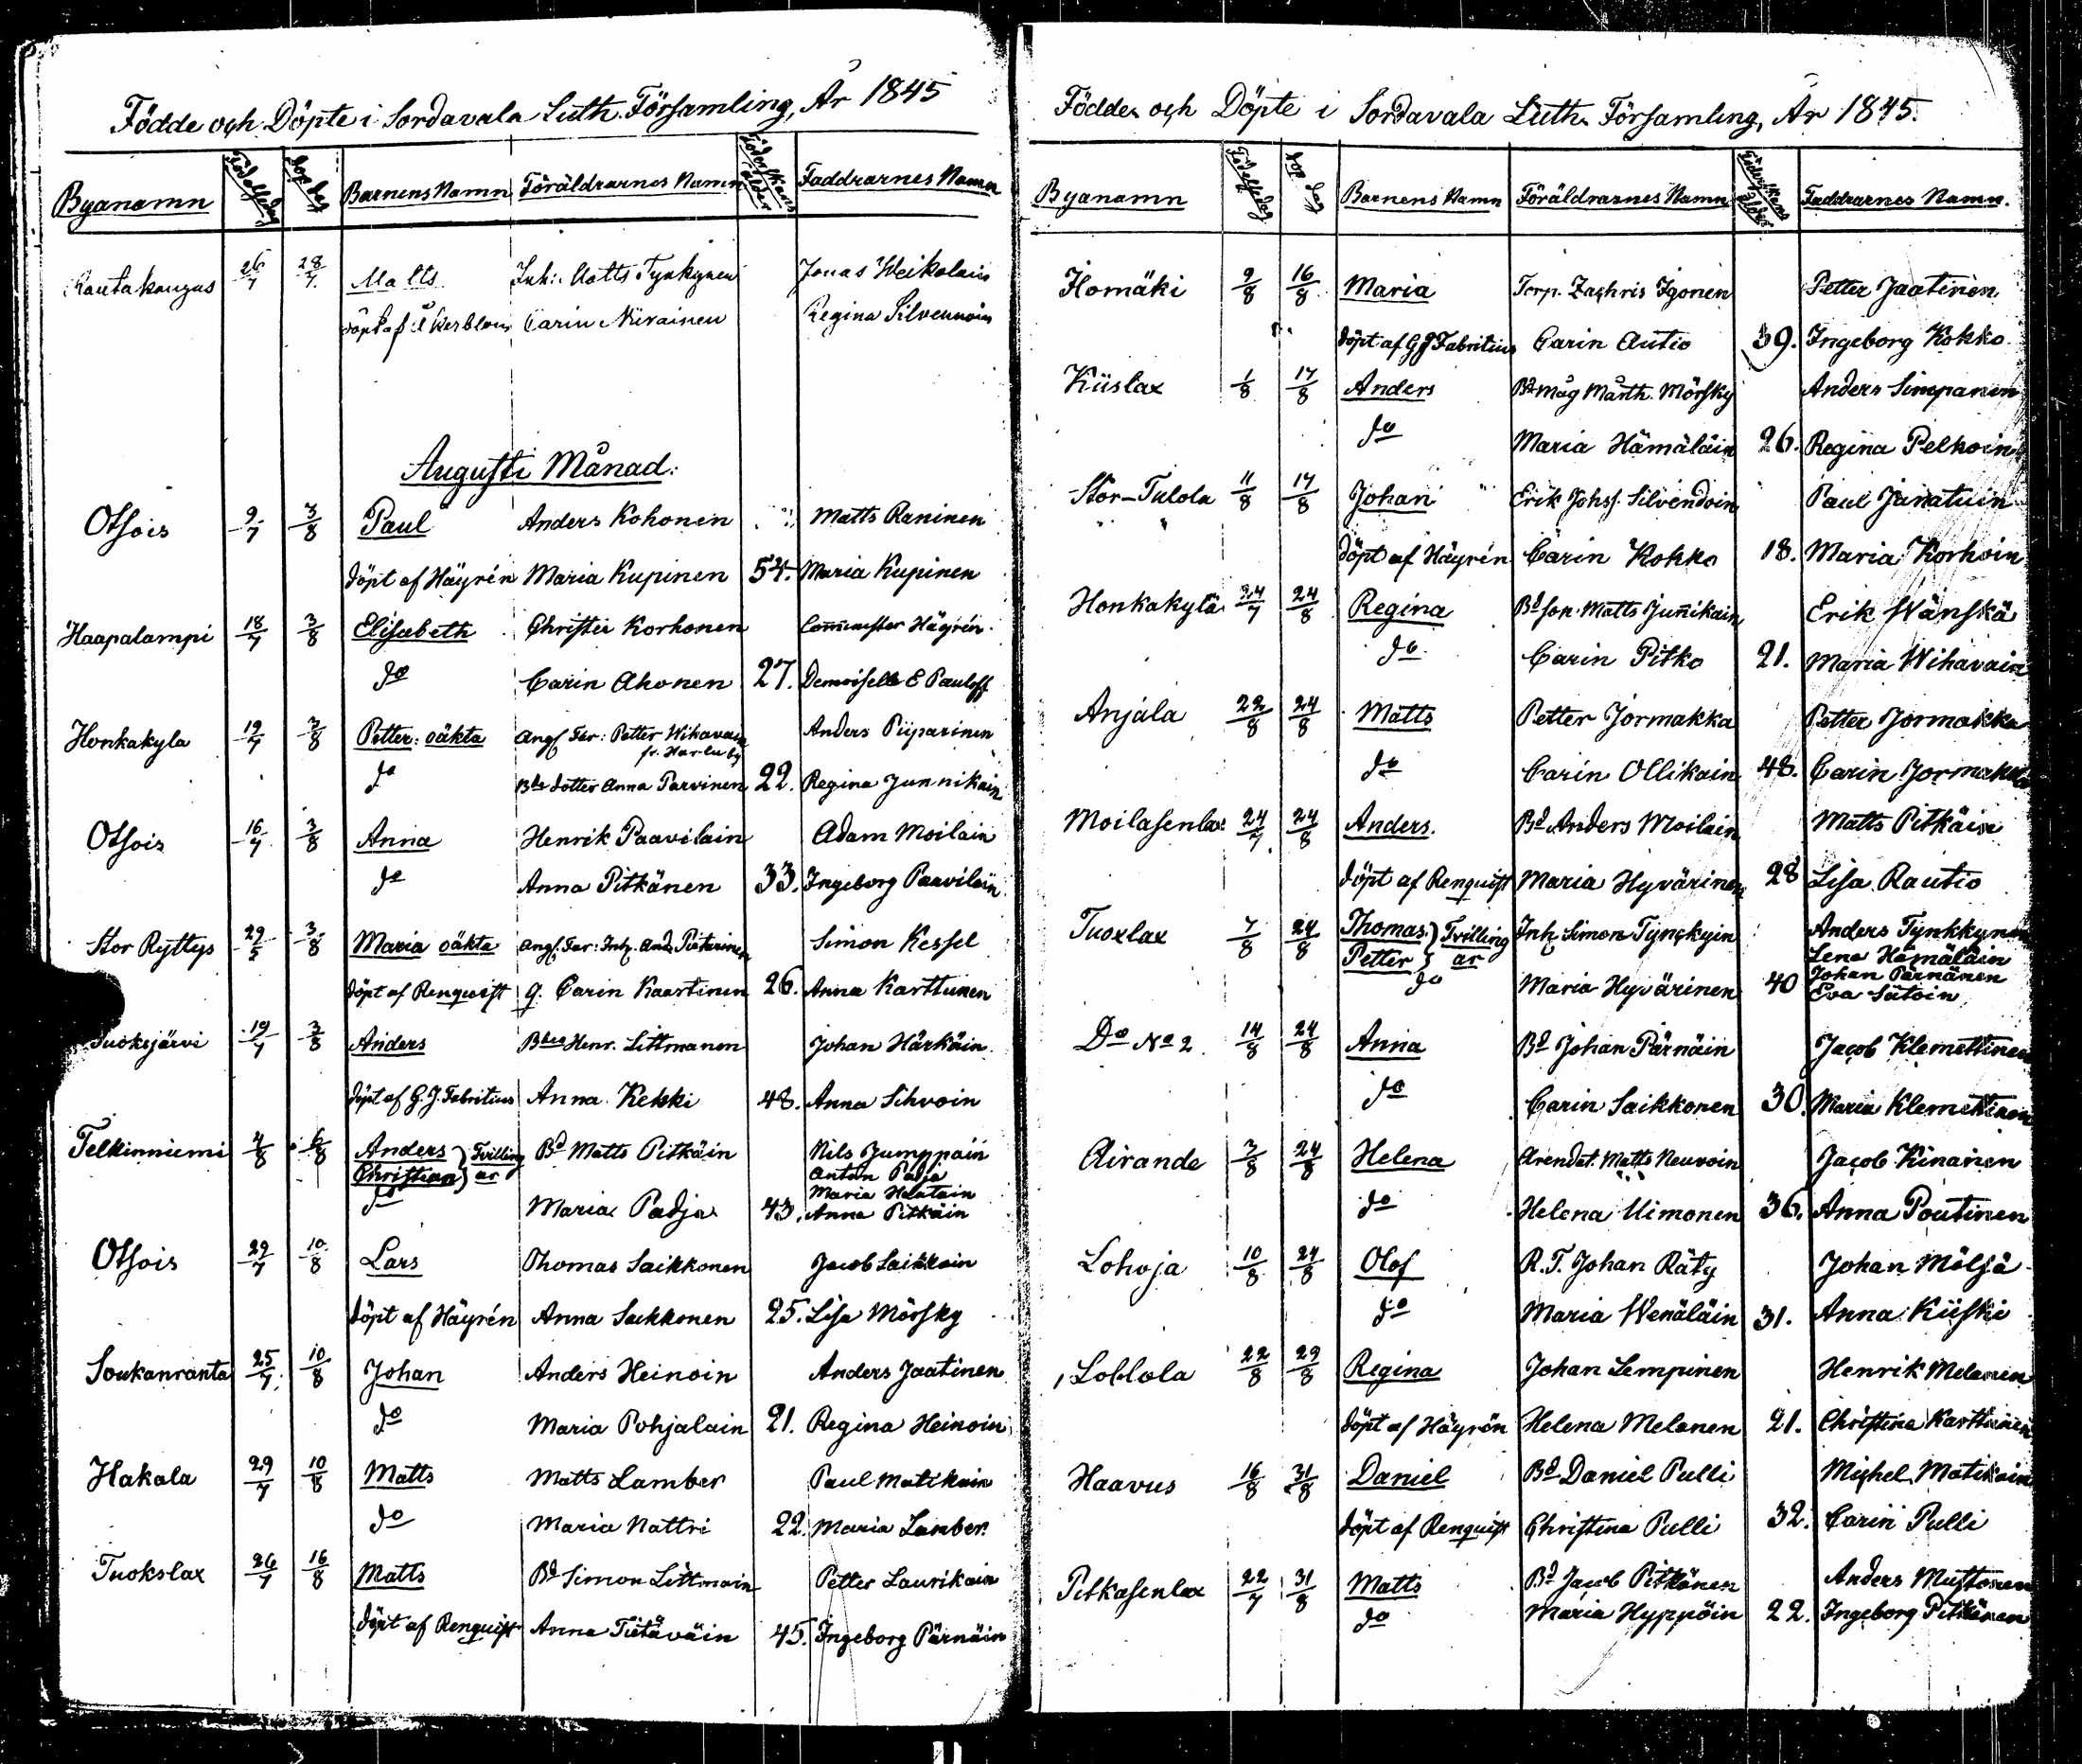 Födde och Döpte i Sordavala Luth. Församling, År 1845
Byanamn Födelsedag Dop dag Barnens Namn Föräldrarnes Namn Föderskans ålder Faddrarnes Namn
Rautakangas 26/7 28/7 Matts Inh: Matts Tynkynen Jonas Weikolain
döpt af Carin Niirainen Regina Silvennoin
Augusti Månad:
Otsois 9/7 3/8 Paul Anders Kohonen Matts Raninen
döpt af Häyrén Maria Kupinen 54. Maria Kupinen
Haapalampi 18/7 3/8 Elisabeth Christer Korhonen Häyrén
do Carin Ahonen 27. Demoiselle E Pauloff
Honkakyla 19/7 3/8 Petter: oäkta angf Far: Petter Wihavain Anders Piiparinen
fr. Harluby
do Bde dotter Anna Parvinen 22. Regina Junnikain
Otsois 16/7 3/8 Anna Henrik Paavilain Adam Moilain
do Anna Pitkänen 33. Ingeborg Paavilain
Stor Ryttys 29/5 3/8 Maria oäkta angf. Far: Inh. And. Pietarinen Simon Kessel
döpt af Renquist q. Carin Kaartinen 26. Anna Karttunen
Tuoksjärvi 19/7 3/8 Anders Henr. Littmanen Johan Härkäin
döpt af G. J. Fabritius Anna Kekki 48. Anna Sihvoin
Telkinniemi 4/8 6/8 Anders } Tvilling Bd Matts Pitkäin Nils Jumppain
Christian } ar Anton Padja
do Maria Padja 43. Maria Hautain
Anna Pitkäin
Otsois 29/7 10/8 Lars Thomas Saikkonen Jacob Saikkoin
döpt af Häyrén Anna Saikkonen 25. Lisa Mörsky
Soukanranta 25/7 10/8 Johan Anders Heinoin Anders Jaatinen
do Maria Pohjalain 21. Regina Heinoin
Hakala 29/7 10/8 Matts Matts Lamber Paul Matikain
do Maria Nattri 22. Maria Lamber
Tuokslax 26/7 16/8 Matts Bd Simon Littmain Petter Laurikain
döpt af Renquist Anna Tiitäväin 45. Ingeborg Pärnäin
Födde och Döpte i Sordavala Luth. Församling, År 1845.
Byanamn Födelsedag Dop dag Barnens Namn Föräldrarnes Namn Föderskans ålder Faddrarnes Namn.
Homäki 9/8 16/8 Maria Torp. Zachris Igonen Petter Jaatinen
döpt af G J Fabritius Carin Autio 39. Ingeborg Kokko
Kiislax 1/8 17/8 Anders Bd Måg Mårth. Mörsky Anders Simpanen
do Maria Hämäläin 26. Regina Pelkoin
Stor-Tulola 11/8 17/8 Johan Erik Johss. Silvendoin Paul Janatuin
döpt af Häyrén Carin Kokko 18. Maria Korhoin
Honkakylä 24/7 24/8 Regina Bd son Matts Junikain Erik Wänskä
do Carin Pitko 21. Maria Wihavain
Anjala 22/8 24/8 Matts Petter Jormakka Petter Jormakka
do Carin Ollikain 48. Carin Jormakka
Moilasenlax 24/7 24/8 Anders. Bd Anders Moilain Matts Pitkäin
döpt af Renquist Maria Hyvärinen 28 Lisa Rautio
Tuoxlax 7/8 24/8 Thomas } Tvilling Inh Simon Tynckyin Anders Tynkkynen
Petter } ar Lena Hämäläin
do Maria Hyvärinen 40 Johan Pärnänen
Eva Sutoin
Do No 2 14/8 24/8 Anna Bd Johan Pärnäin Jacob Klemettinen
do Carin Saikkonen 30. Maria Klemettinen
Airande 3/8 24/8 Helena Arendat. Matts Neuvoin Jacob Kinanen
do Helena Uimonen 36. Anna Poutinen
Lohoja 10/8 24/8 Olof R. T. Johan Räty Johan Mölsä
do Maria Wenäläin 31. Anna Kiiski
Loblola 22/8 29/8 Regina Johan Lempinen Henrik Melanen
döpt af Häyrén Helena Melanen 21. Christina Karttunen
Haavus 16/8 31/8 Daniel Bd Daniel Pulli Michel Matikain
döpt af Renquist Christina Pulli 32. Carin Pulli
Pitkasenlax 22/7 31/8 Matts Bd Jacob Pitkänen Anders Muttonen
do Maria Hyppöin 22. Ingeborg Pitkänen